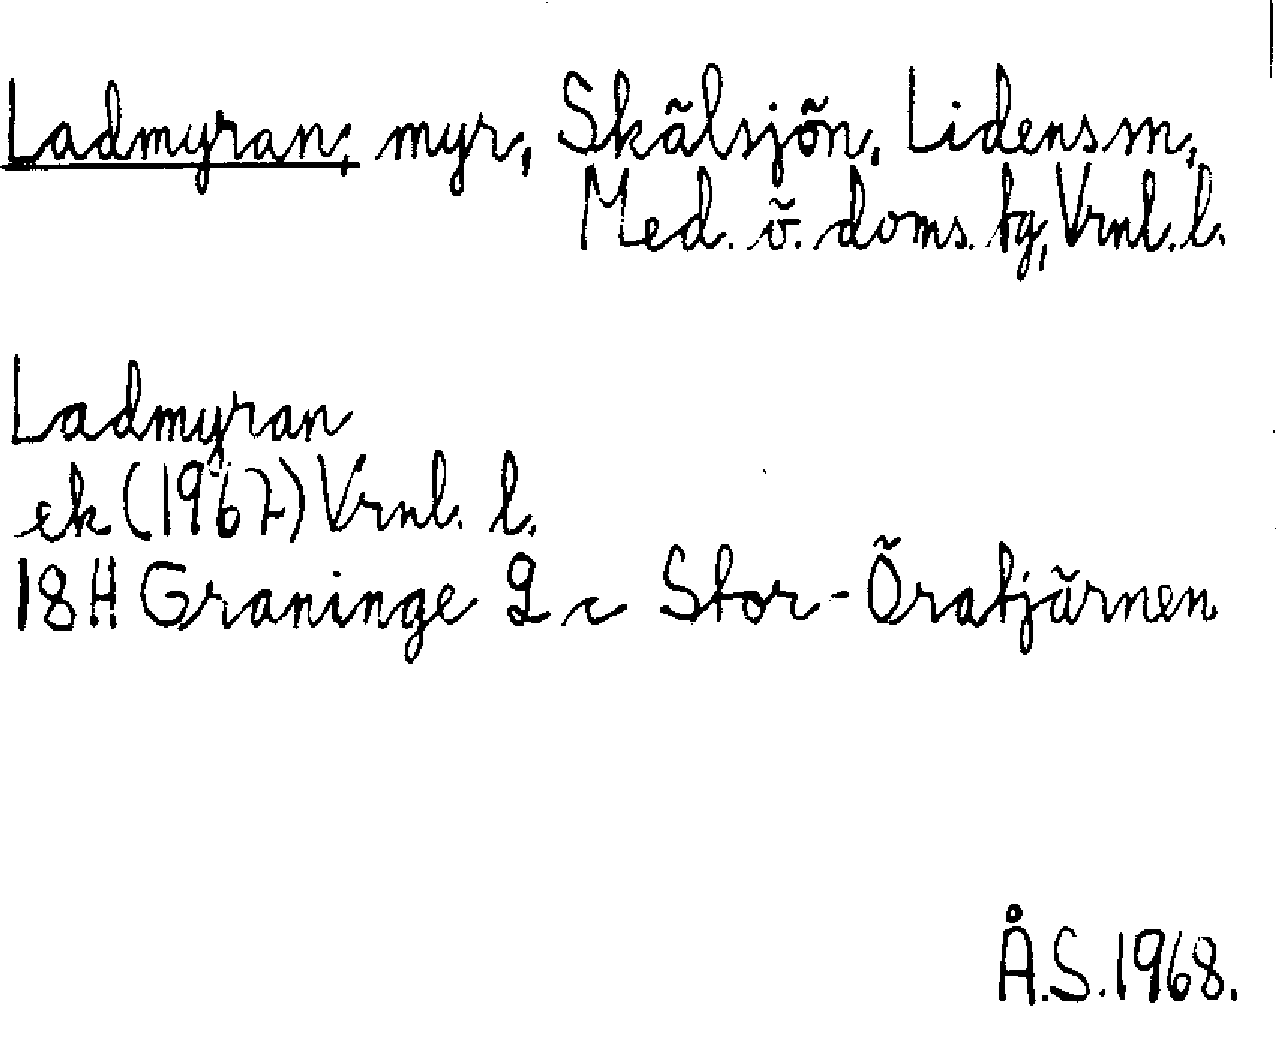 Ladmyran, myr, Skälsjön, Lidens sn,
Med. ö. doms. tg, Vrnl. l.
Ladmyran
ek (1967) Vrnl. l.
18H Graninge 9 c Stor-Öratjärnen
Å.S. 1968.